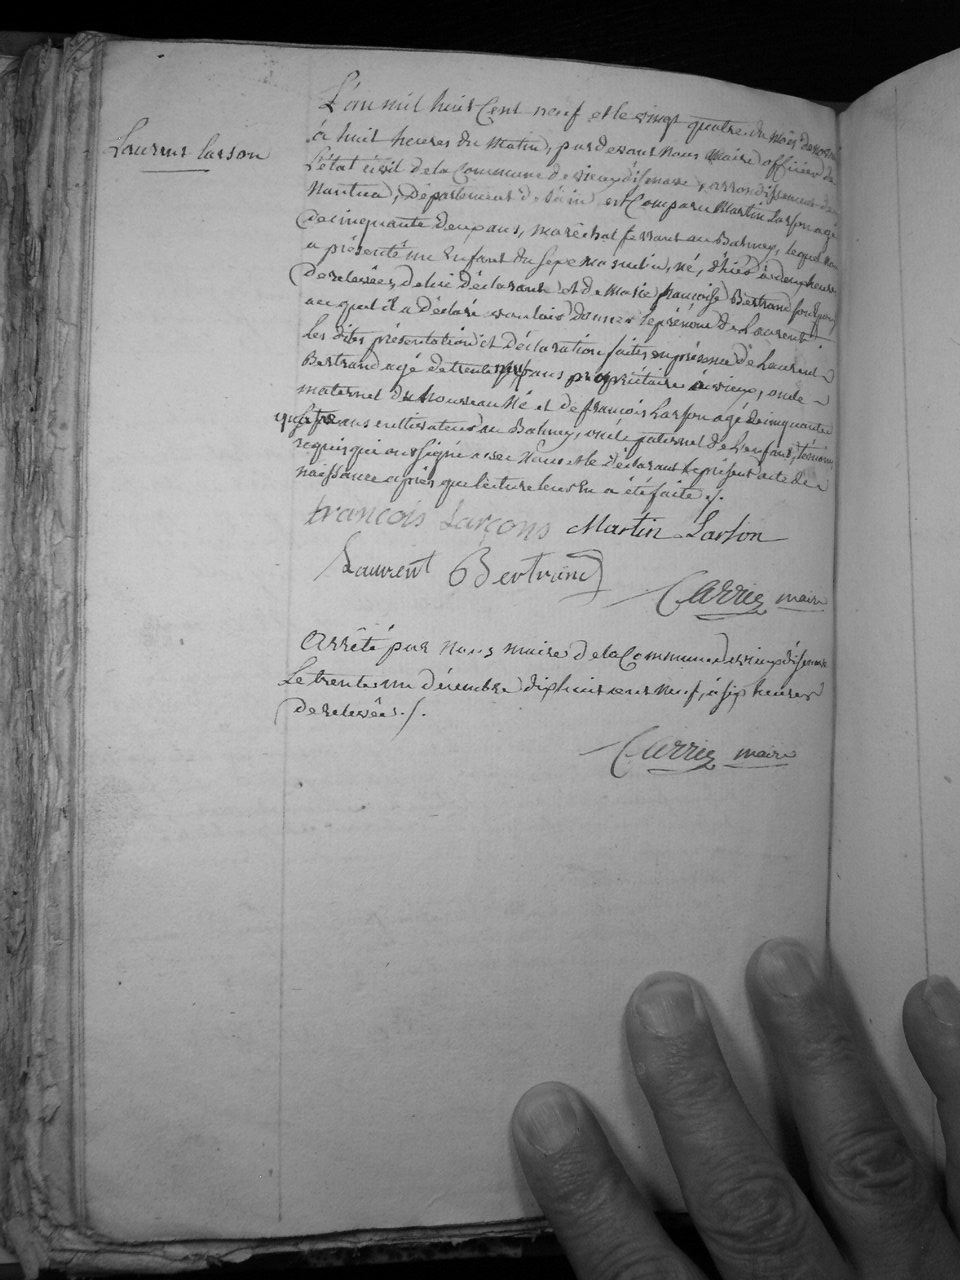 Laurent Larson
L'an mil huit Cent neuf et le vingt quatre du mois de
à huit heures du Matin, par devant Nous Maire officier de
L'état civil de la Commune de vieux d'isenave, arrondissement de
Nantua, Département de l'ain est Comparu Martin Larson agé
de cinquante deux ans, maréchal ferrant au Balmey, lequel nous
a présenté un Enfant du sexe masculin, né, d'hier à deux heures
de relevées, de lui déclarant et de Marie françoise Bertrand son Epouse
auquel il a déclaré vouloir donner le prénom de Laurent
Les dites présentation et Déclaration faites en présence de Laurent
Bertrand agé de trente neuf ans propriétaire à vieux, oncle
maternel du Nouveau Né et de françois Larson agé de cinquante
quatre ans cultivateur au Balmey, oncle paternel de L'enfant, témoins
requis qui ont signé avec Nous et le déclarant le présent acte de
naissance après que lecture leur En a été faite ./.
francois Larçons Martin Larson
Laurent Bertrand
Carrier maire
Arrêté par Nous maire de la Commune de vieux d'isenave
Le trente un décembre dix huit cent neuf, à six heures
de relevées ./.
Carrier maire